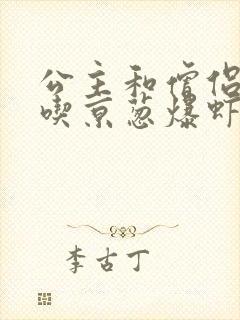 公主和僧侣
喫京葱爆虾
李古丁